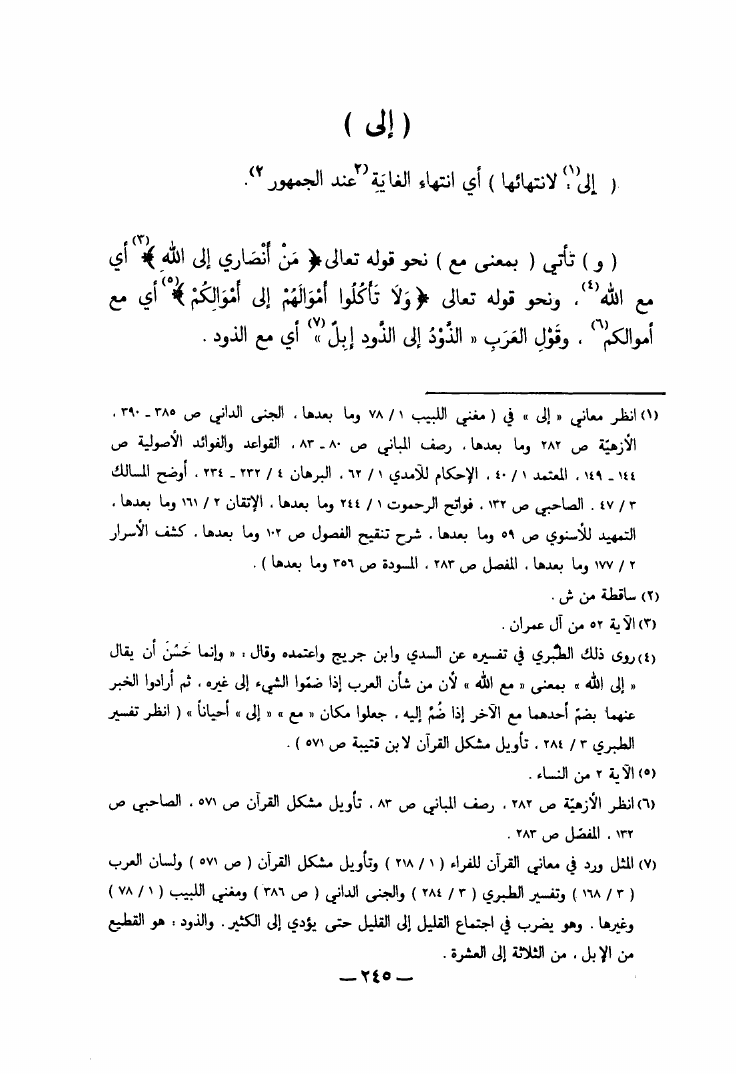 ( إلى )
( إلى(١): لانتهائها ) أي انتهاء الغاية (٢عند الجمهور٢).
( و ) تأتي ( بمعنى مع ) نحو قوله تعالى ﴿ مَنْ أَنْصَاري إلى اللهِ ﴾(٣) أي
مع الله(٤)، ونحو قوله تعالى ﴿ وَلَا تَأكُلُوا أمْوَالَهُمْ إلى أمْوَالِكُمْ ﴾(٥) أي مع
أموالكم(٦)، وقَوْلِ العَرَبِ « الذَّوْدُ إلى الذَّودِ إبلٌ »(٧) أي مع الذود.
(١) انظر معاني « إلى » في ( مغني اللبيب ١ / ٧٨ وما بعدها، الجنى الداني ص ٣٨٥ ـ ٣٩٠،
الأزهيّة ص ٢٨٢ وما بعدها، رصف المباني ص ٨٠ ـ ٨٣، القواعد والفوائد الأصولية ص
١٤٤ ـ ١٤٩، المعتمد ١ / ٤٠، الإحكام للآمدي ١ / ٦٢، البرهان ٤ / ٢٣٢ ـ ٢٣٤، أوضح المسالك
٣ / ٤٧، الصاحبي ص ١٣٢، فواتح الرحموت ١ / ٢٤٤ وما بعدها، الإتقان ٢ / ١٦١ وما بعدها،
التمهيد للأسنوي ص ٥٩ وما بعدها، شرح تنقيح الفصول ص ١٠٢ وما بعدها، كشف الأسرار
٢ / ١٧٧ وما بعدها، المفصل ص ٢٨٣، المسودة ص ٣٥٦ وما بعدها ).
(٢) ساقطة من ش.
(٣) الآية ٥٢ من آل عمران.
(٤) روى ذلك الطبّري في تفسيره عن السدي وابن جريج واعتمده وقال: « وإنما حَسُنَ أن يقال
« إلى الله » بمعنى « مع الله » لأن من شأن العرب إذا ضمّوا الشيء إلى غيره، ثم أرادوا الخبر
عنهما بضمّ أحدهما مع الآخر إذا ضُمَّ إليه، جعلوا مكان « مع » « إلى » أحياناً » ( انظر تفسير
الطبري ٣ / ٢٨٤، تأويل مشكل القرآن لابن قتيبة ص ٥٧١ ).
(٥) الآية ٢ من النساء.
(٦) انظر الأزهيّة ص ٢٨٢، رصف المباني ص ٨٣، تأويل مشكل القرآن ص ٥٧١، الصاحبي ص
١٣٢، المفصّل ص ٢٨٣.
(٧) المثل ورد في معاني القرآن للفراء ( ١ / ٢١٨ ) وتأويل مشكل القرآن ( ص ٥٧١ ) ولسان العرب
( ٣ / ١٦٨ ) وتفسير الطبري ( ٣ / ٢٨٤ ) والجنى الداني ( ص ٣٨٦ ) ومغني اللبيب ( ١ / ٧٨ )
وغيرها. وهو يضرب في اجتماع القليل إلى القليل حتى يؤدي إلى الكثير. والذود: هو القطيع
من الإبل، من الثلاثة إلى العشرة.
— ٢٤٥ —